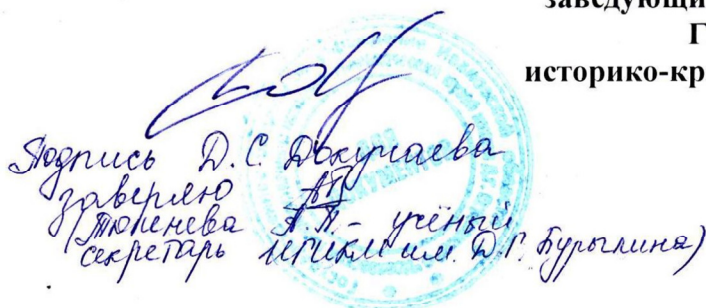 заведующи
Г
историко-кр
Подпись Д.С. Докучаева
заверяю
(Тюленева А.П. - учёный
секретарь ИГИКМ им. Д.Г. Бурылина)